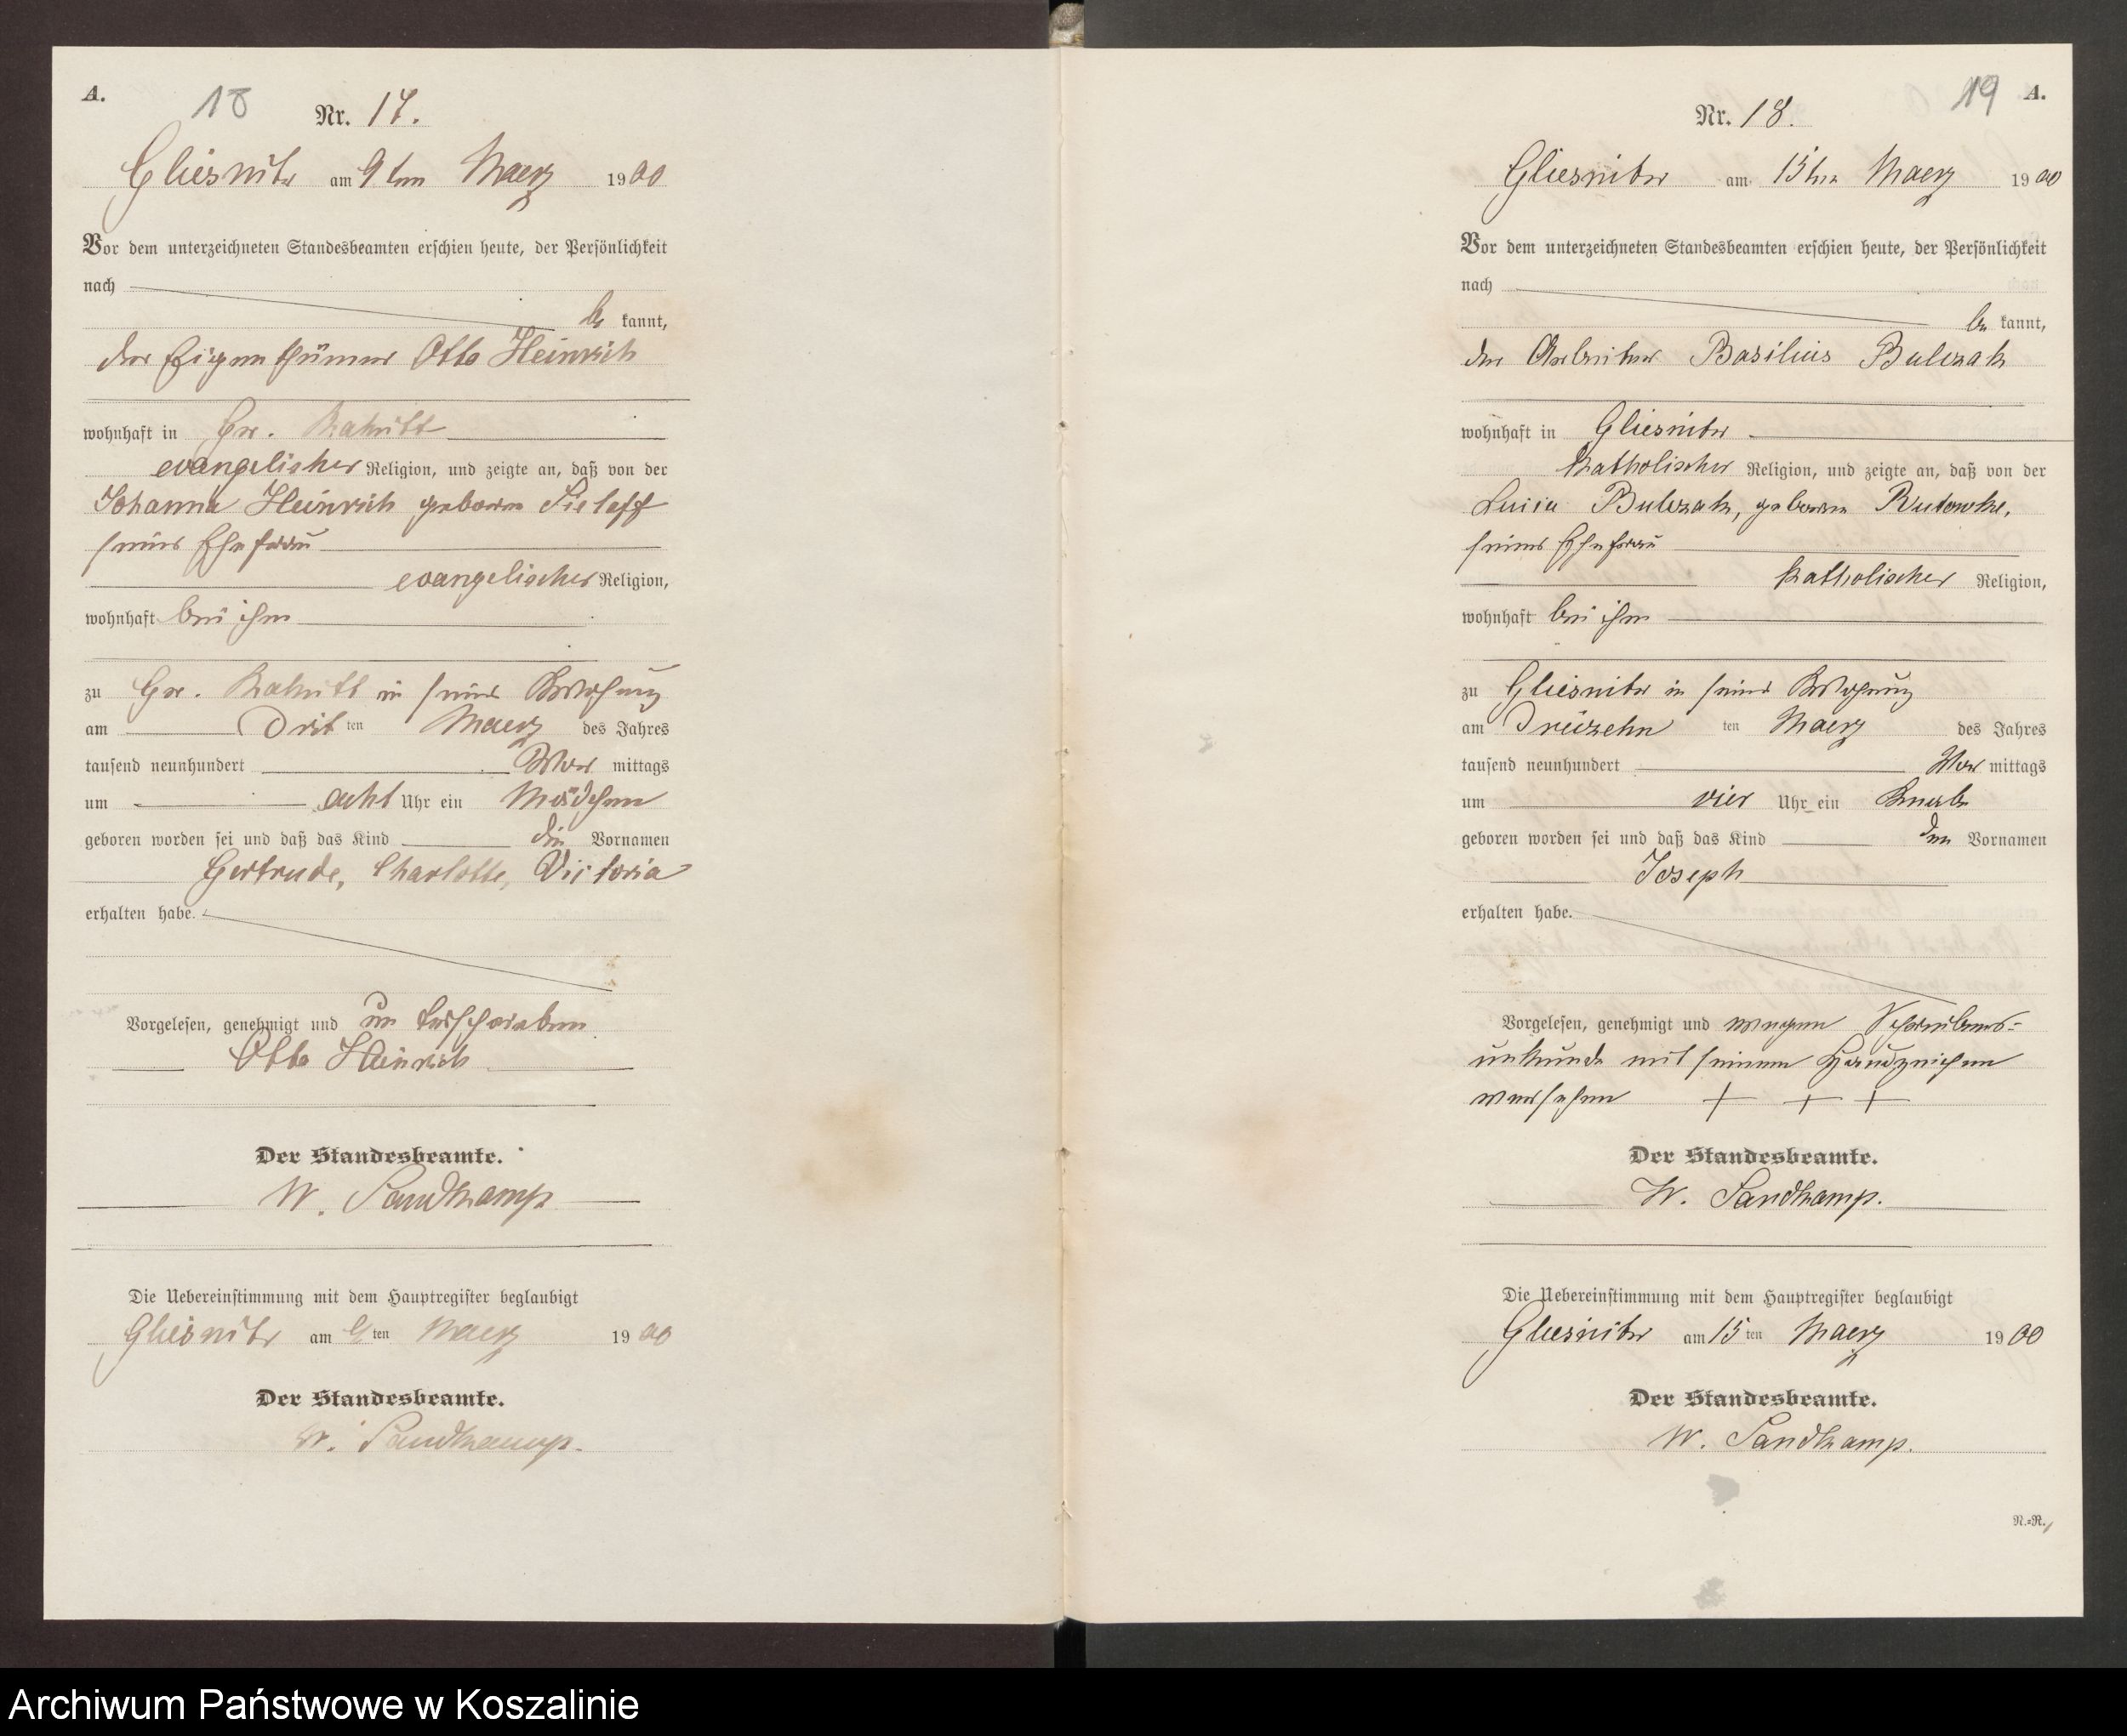 A.
18
Nr. 17.
Gliesnitz am 9ten Maerz 1900
Vor dem unterzeichneten Standesbeamten erschien heute, der Persönlichkeit
nach
be kannt,
der Eigenthümer Otto Heinrich
wohnhaft in Gr.
evangelischer Religion, und zeigte an, daß von der
Johanna Heinrich geborne Sielaff
seiner Ehefrau
evangelischer Religion,
wohnhaft bei ihm
zu Gr. in seiner Behausung
am Drit ten Maerz des Jahres
tausend neunhundert Vor mittags
um acht Uhr ein Mädchen
geboren worden sei und daß das Kind die Vornamen
Gertrude, Charlotte, Victoria
erhalten habe.
Vorgelesen, genehmigt und unterschrieben
Otto Heinrich
Der Standesbeamte.
W. Sandkamp
Die Uebereinstimmung mit dem Hauptregister beglaubigt
Gliesnitz am 9ten Maerz 1900
Der Standesbeamte.
W. Sandkamp.
19
A.
Nr. 18.
Gliesnitz am 15ten Maerz 1900
Vor dem unterzeichneten Standesbeamten erschien heute, der Persönlichkeit
nach
be kannt,
der Arbeiter Basilius Bulczak
wohnhaft in Gliesnitz
katholischer Religion, und zeigte an, daß von der
Bulczak, geborne
seiner Ehefrau
katholischer Religion,
wohnhaft bei ihm
zu Gliesnitz in seiner Behausung
am Dreizehn ten Maerz des Jahres
tausend neunhundert Vor mittags
um vier Uhr ein Knabe
geboren worden sei und daß das Kind den Vornamen
Joseph
erhalten habe.
Vorgelesen, genehmigt und wegen Schreibens-
unkunde mit seinem Handzeichen
versehen + + +
Der Standesbeamte.
W. Sandkamp.
Die Uebereinstimmung mit dem Hauptregister beglaubigt
Gliesnitz am 15ten Maerz 1900
Der Standesbeamte.
W. Sandkamp.
N.=R.
Archiwum Państwowe w Koszalinie